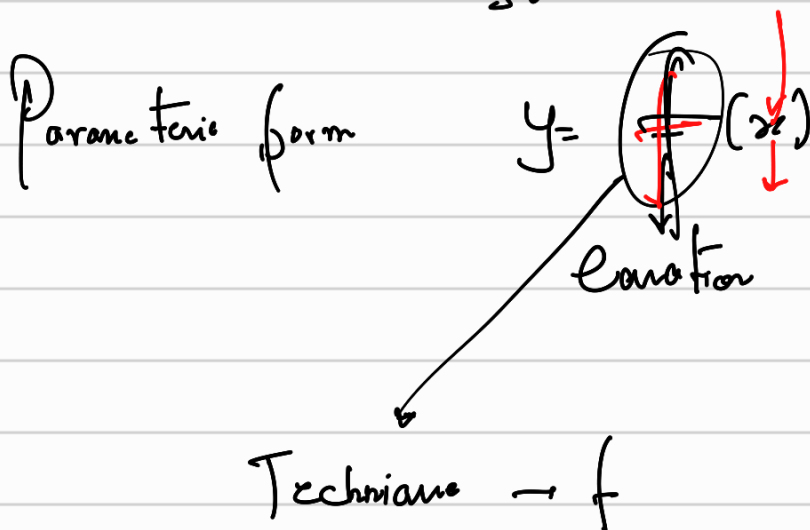 Parametric form y = f(x)
equation
Technique → f